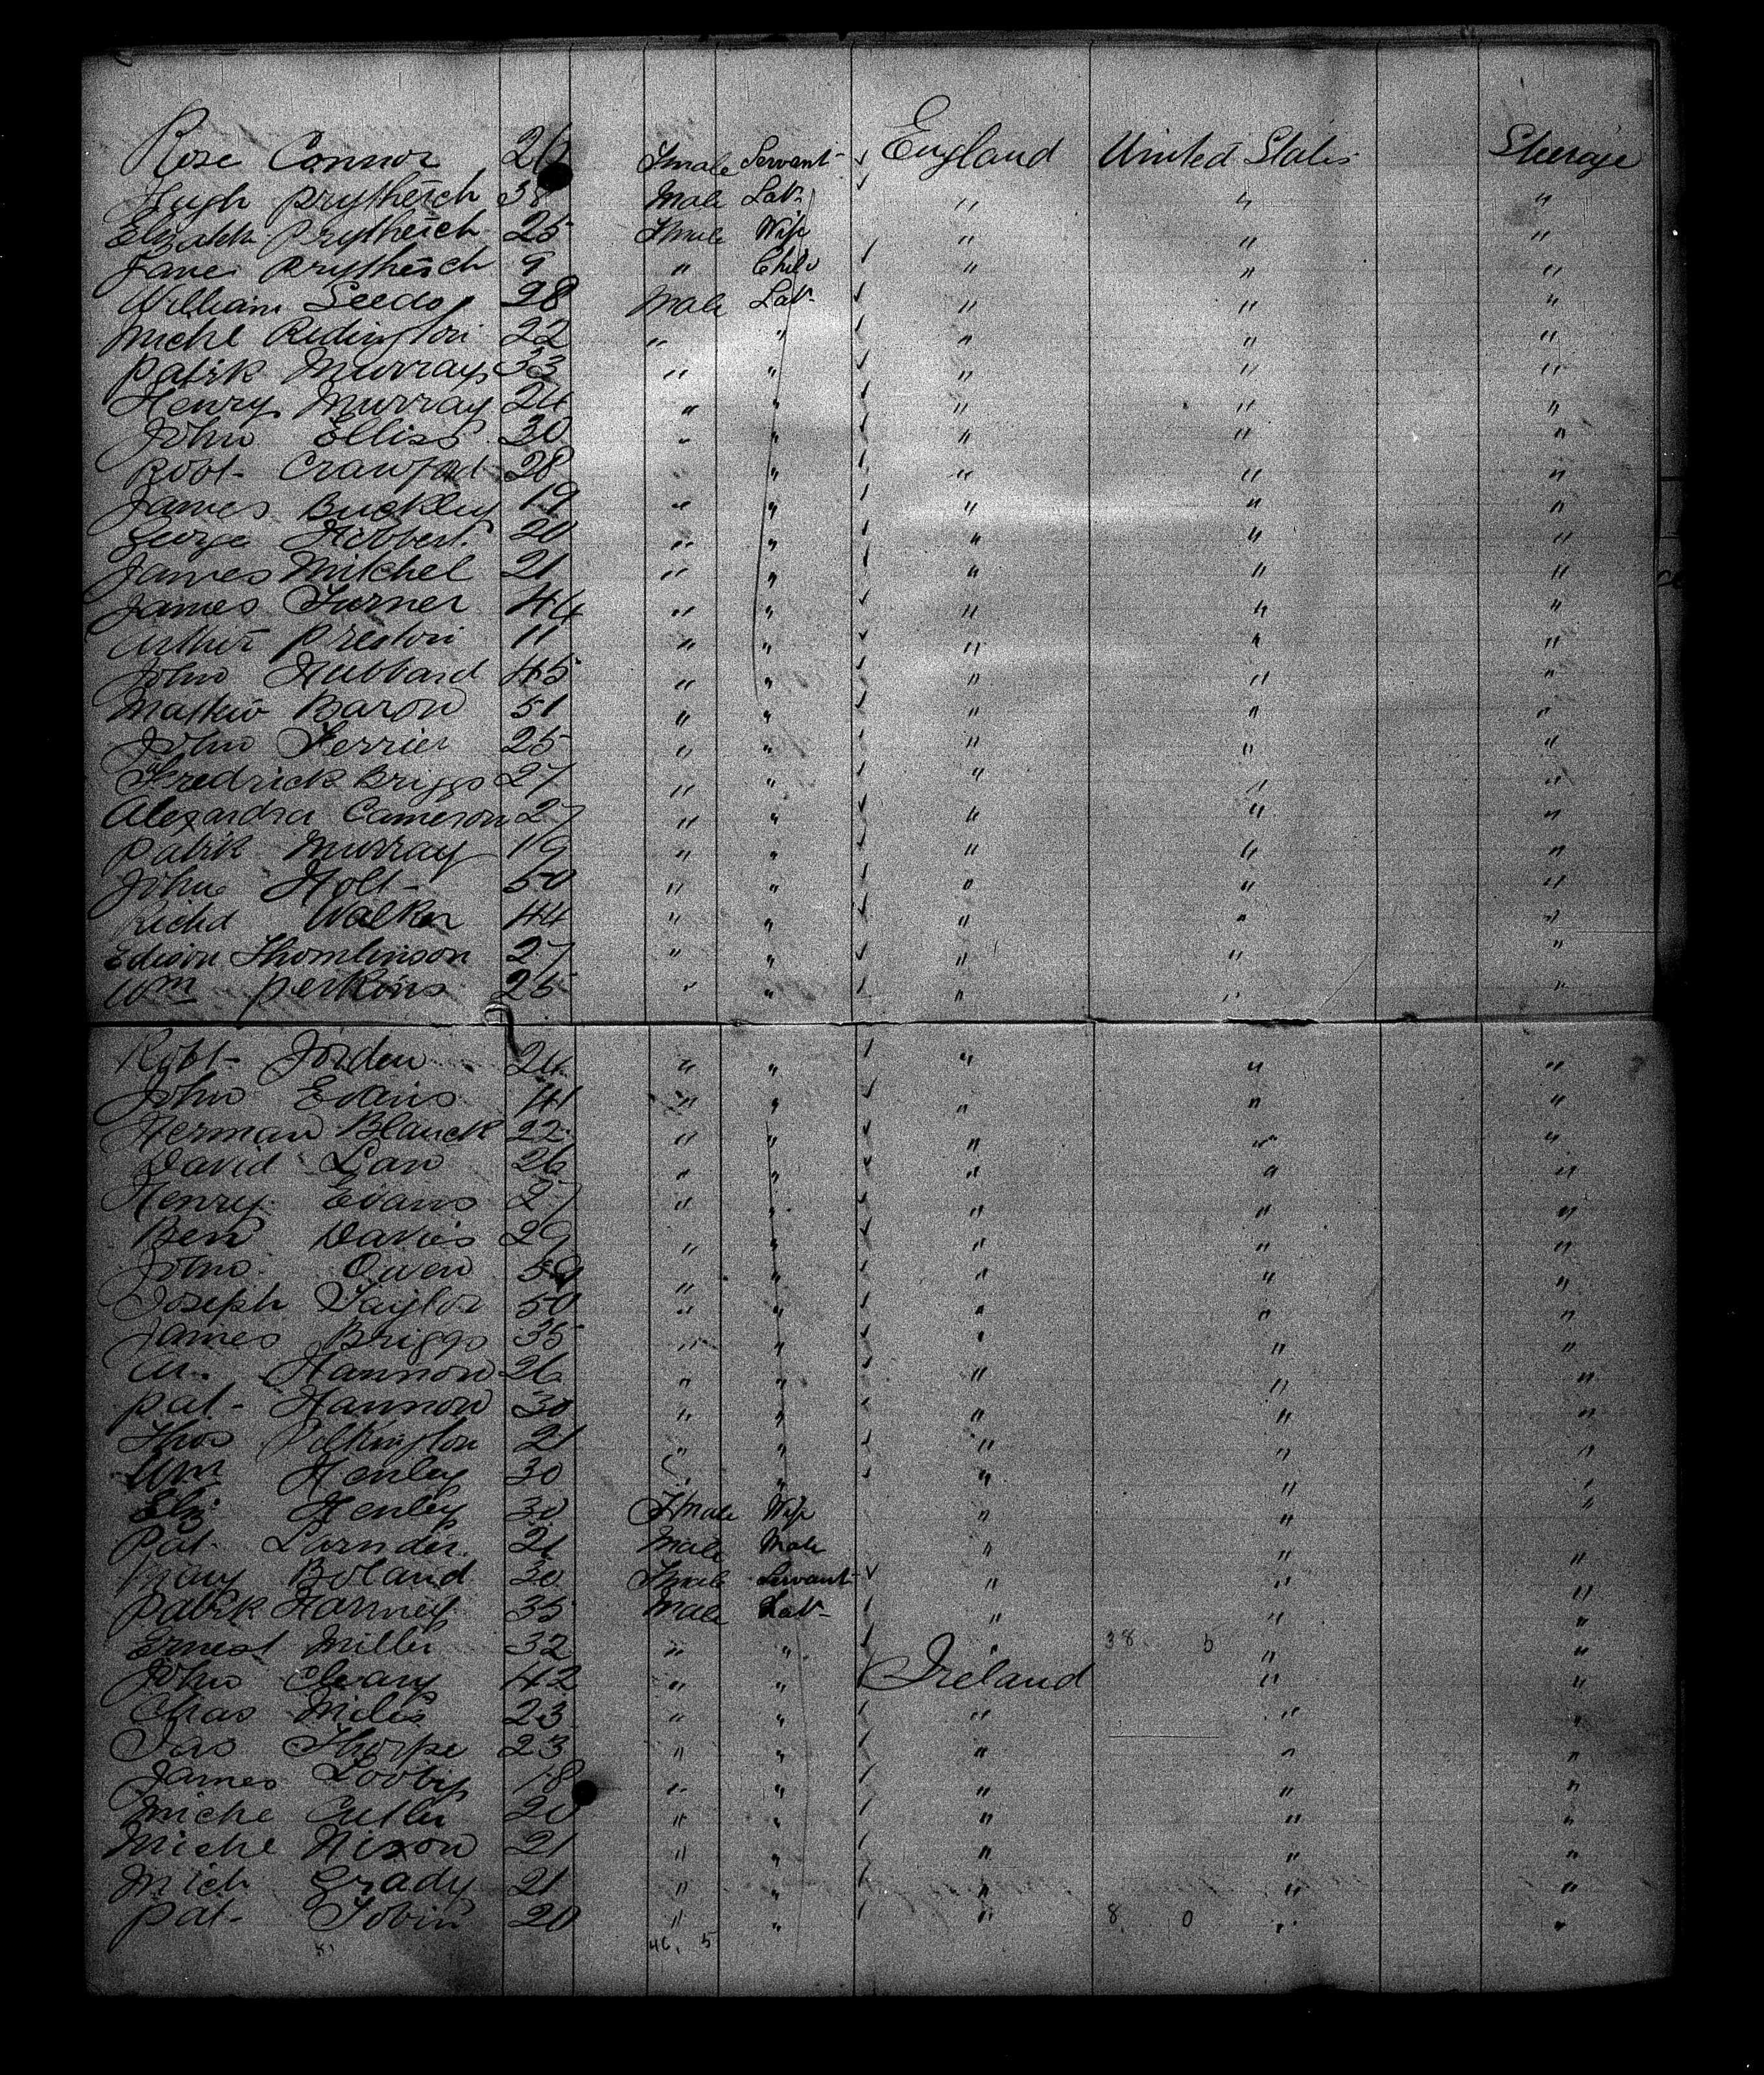 Rose Connor 26 Female Servant England United States Steerage
Hugh Prytherch 38 Male Lab " " "
Elizabth Prytherch 25 Female Wife " " "
Jane Prytherch 9 " Child " " "
William Seeds 28 Male Lab " " "
Michl Ridington 22 " " " " "
Patrk Murray 33 " " " " "
Henry Murray 24 " " " " "
John Elliss 30 " " " " "
Robt Crawford 28 " " " "
James Buckley 19 " " " " "
George Hibbert 20 " " " " "
James Mitchel 21 " " " " "
James Turner 44 " " " " "
Arthur Preston 11 " " " " "
John Hubbard 45 " " " " "
Mathew Baron 51 " " " " "
John Ferrier 25 " " " " "
Fredrick Briggs 27 " " " " "
Alexandra Cameron 27 " " " " "
Patrk Murray 19 " " " " "
John Holt 50 " " " " "
Richd Walker 44 " " " " "
Edison Thomlinson 27 " " " " "
Wm Perkins 25 " " " " "
Robt Jorden 24 " " " " "
John Evans 41 " " " " "
Herman Blanck 22 " " " " "
David Law 26 " " " " "
Henry Evans 27 " " " " "
Ben Davies 29 " " " " "
John Owen " " " " "
Joseph Taylor 50 " " " " "
James Briggs 35 " " " " "
Hannon 26 " " " " "
Pat Hannon 30 " " " " "
Thos Pilkington 21 " " " " "
Wm Henley 30 " " " " "
Eliz Henley 30 Female Wife " " "
Pat 21 Male Male " " "
Mary Boland 30 Female Servant " " "
Patrk Harney 35 Male Lab " " "
Ernest Miller 32 " " 38 5 " "
John Cleary 42 " " Ireland " "
Chas Miles 23 " " " " "
Jas Thorpe 23 " " " " "
James Looby 18 " " " " "
Miche Cutler 20 " " " " "
Miche Nixon 21 " " " " "
Mich Grady 21 " " " " "
Pat Tobin 20 " " " 8 0 " "
46. 5